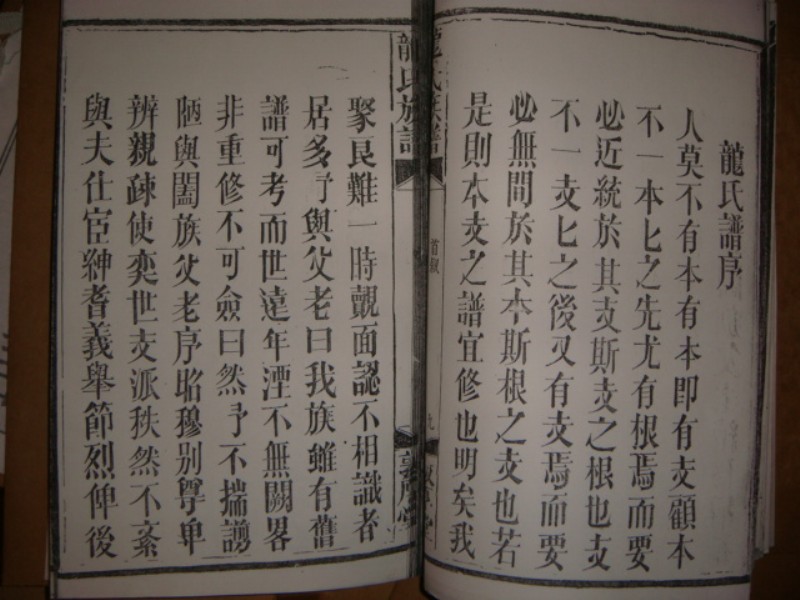 龍氏譜序
人莫不有本有本即有支顧本
不一本匕之先尤有根焉而要
必近統於其支斯支之根也支
不一支匕之後又有支焉而要
必無間於其本斯根之支也若
是則本支之譜宜修也明矣我
龍氏族譜
首敘
九
敦厚堂
龍氏族譜
敦厚堂
聚艮難一時覿面認不相識者
居多予與父老曰我族雖有舊
譜可考而世遠年湮不無闕畧
非重修不可僉曰然予不揣譾
陋與闔族父老序昭穆别尊卑
辨親疎使奕世支派秩然不紊
與夫仕宦紳耆義舉節烈俾後